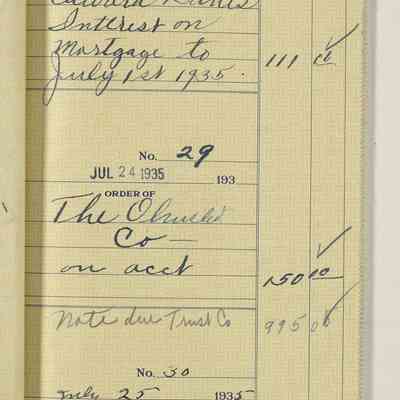 Edward
Interest on
Mortgage to
July 1st 1935. 111
No. 29
JUL 24 1935 193
ORDER OF
The
Co —
on acct 150 00
Note due Trust Co 995 00
No. 30
July 25 1935